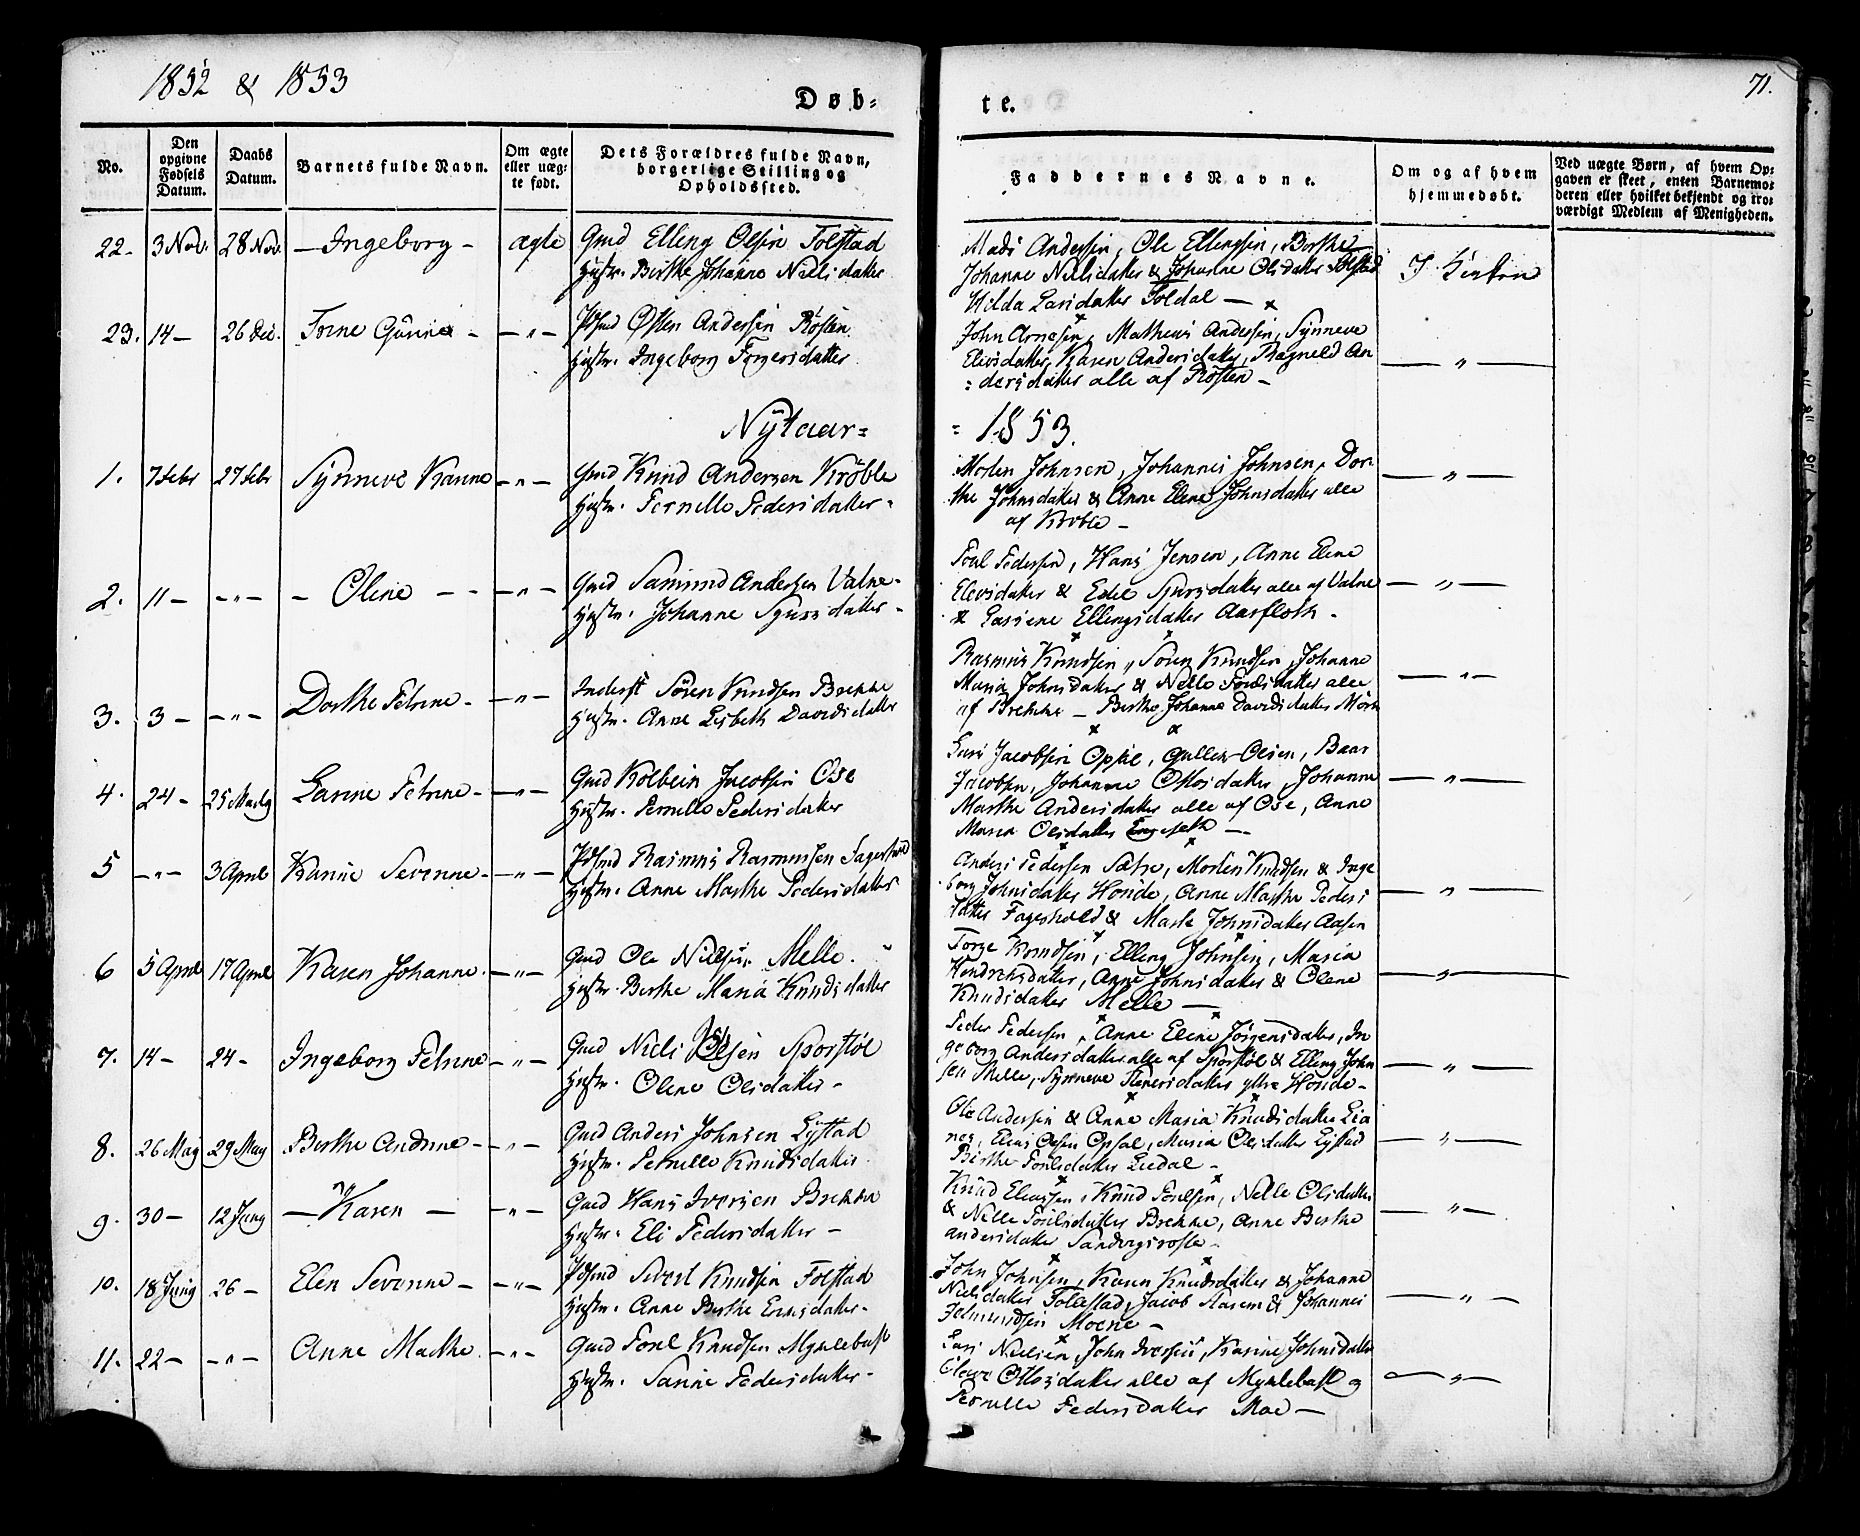 1852 & 1853
Døb-
te.
71.
No.
Den opgivne Fødsels Datum.
Daabs Datum.
Barnets fulde Navn.
Om ægte eller uæg- te født.
Dets Forældres fulde Navn, borgerlige Stilling og Opholdssted.
Faddernes Navne.
Om og af hvem hjemmedøbt.
Ved uægte Børn, af hvem Op- gaven er skeet, enten Barnemo- deren eller hvilket bekjendt og tro- værdigt Medlem af Menigheden.
22- 3 Nov. 28 Nov. — Ingeborg - ægte Gmd Elling Olsen Folstad
Hustr. Birthe Johanne Nielsdatter
Mads Andersen, Ole Ellingsen, Berthe
Johanne Nielsdatter & Johanne Olsdatter Folstad
Hilda Larsdatter Foldal —
I Kirken
23. 14 - 26 Dec. Torne Gurine - — " — Pdsmd Østen Andersen Røsten
Hustr. Ingeborg Torgersdatter
John Arnesen, Matheus Andersen, Synneve
Elevsdatter, Karen Andersdatter, Ragneld An
- dersdatter alle af Røsten - — " —
Nytaar =
= 1853.
1. 7 Febr 27 Febr Synneve Hanne — " — Gmd Knud Andersen Krøble
Hustr. Pernille Pedersdatter -
Morten Johnsen, Johannes Johnsen, Dor
the Johnsdatter & Anne Elene Johnsdatter alle
af Krøble - — " —
2. 11 - — " — - Oline - - — " — Gmd Samund Andersen Vatne -
Hustr. Johanne Sjursdatter -
Poul Pedersen, Hans Jensen, Anne Elene
Elevsdatter & Edel Sjursdatter alle af Vatne
& Larsine Ellingsdatter Aarfloth - — " —
3. 3 - — " — Dorthe Petrine - — " — Inderst Søren Knudsen Brekke
Hustr. Anne Lisbeth Davidsdatter
Rasmus Knudsen, Søren Knudsen, Johanne
Maria Johnsdatter & Nelle Poulsdatter alle
af Brekke - Berthe Johanne Davidsdatter Mørk — " —
4. 24 - 25 Marts Larine Petrine - — " — Gmd Kolbein Jacobsen Ose
Hustr. Pernille Pedersdatter
Lars Jacobsen Opsal, Gullik Olsen, Baar
Jacobsen, Johanne Ottosdatter, Johanne
Marthe Andersdatter alle af Ose, Anne
Maria Olsdatter Engeseth — — " —
5 — " — 3 April Karine Severine - — " — Pdsmd Rasmus Rasmussen Fagerhold
Hustr. Anne Marthe Pedersdatter
Anders Pedersen Sætre, Morten Knudsen & Inge
borg Johnsdatter Hovde, Anne Marthe Peders
datter Fagerhold & Marte Johnsdatter Aasen — " —
6 5 April 17 April Karen Johanne - — " — Gmd Ole Nielsen Melle.
Hustr. Berthe Maria Knudsdatter
Torge Knudsen, Elling Johnsen, Maria
Hendriksdatter, Anne Johnsdatter & Olene
Knudsdatter Melle — — " —
7. 14 - 24 - Ingeborg Petrine — " — Gmd Niels Olsen Sporstøl
Hustr. Oline Olsdatter -
Peder Pedersen, Anne Elene Jørgensdatter, In
geborg Andersdatter alle af Sporstøl & Elling John
sen Melle, Synneve Steversdatter ytre Hovde - — " —
8. 26 May 29 May Berthe Andrine - — " — Gmd Anders Johnsen Lystad
Hustr. Pernille Knudsdatter
Ole Andersen & Anne Maria Knudsdatter Lia
nes, Elias Olsen Opsal, Maria Olsdatter Lystad
Berthe Poulsdatter Liedal - — " —
9. 30 - 12 Juny — Karen — — " — Gmd Hans Iversen Brekke
Hustr. Eli Pedersdatter -
Knud Eliassen, Knud Poulsen, Nelle Olsdatter
& Nelle Poulsdatter Brekke, Anne Berthe
Andersdatter Sandvigsroste - — " —
10. 18 Juny 26 - Elen Severine - — " — Pdsmd Sivert Knudsen Folstad
Hustr. Anne Berthe Eriksdatter -
John Johnsen, Karen Knudsdatter & Johanne
Nielsdatter Folestad, Jacob Aasen & Johannes
Jetmundsen Moene - — " —
11. 22 - — " — Anne Marthe — " — Gmd Poul Knudsen Myklebust
Hustr. Sanine Pedersdatter -
Lars Nielsen, John Iversen, Karine Johnsdatter
Olave Ottosdatter alle af Myklebust og
Pernille Pedersdatter Moe — — " —